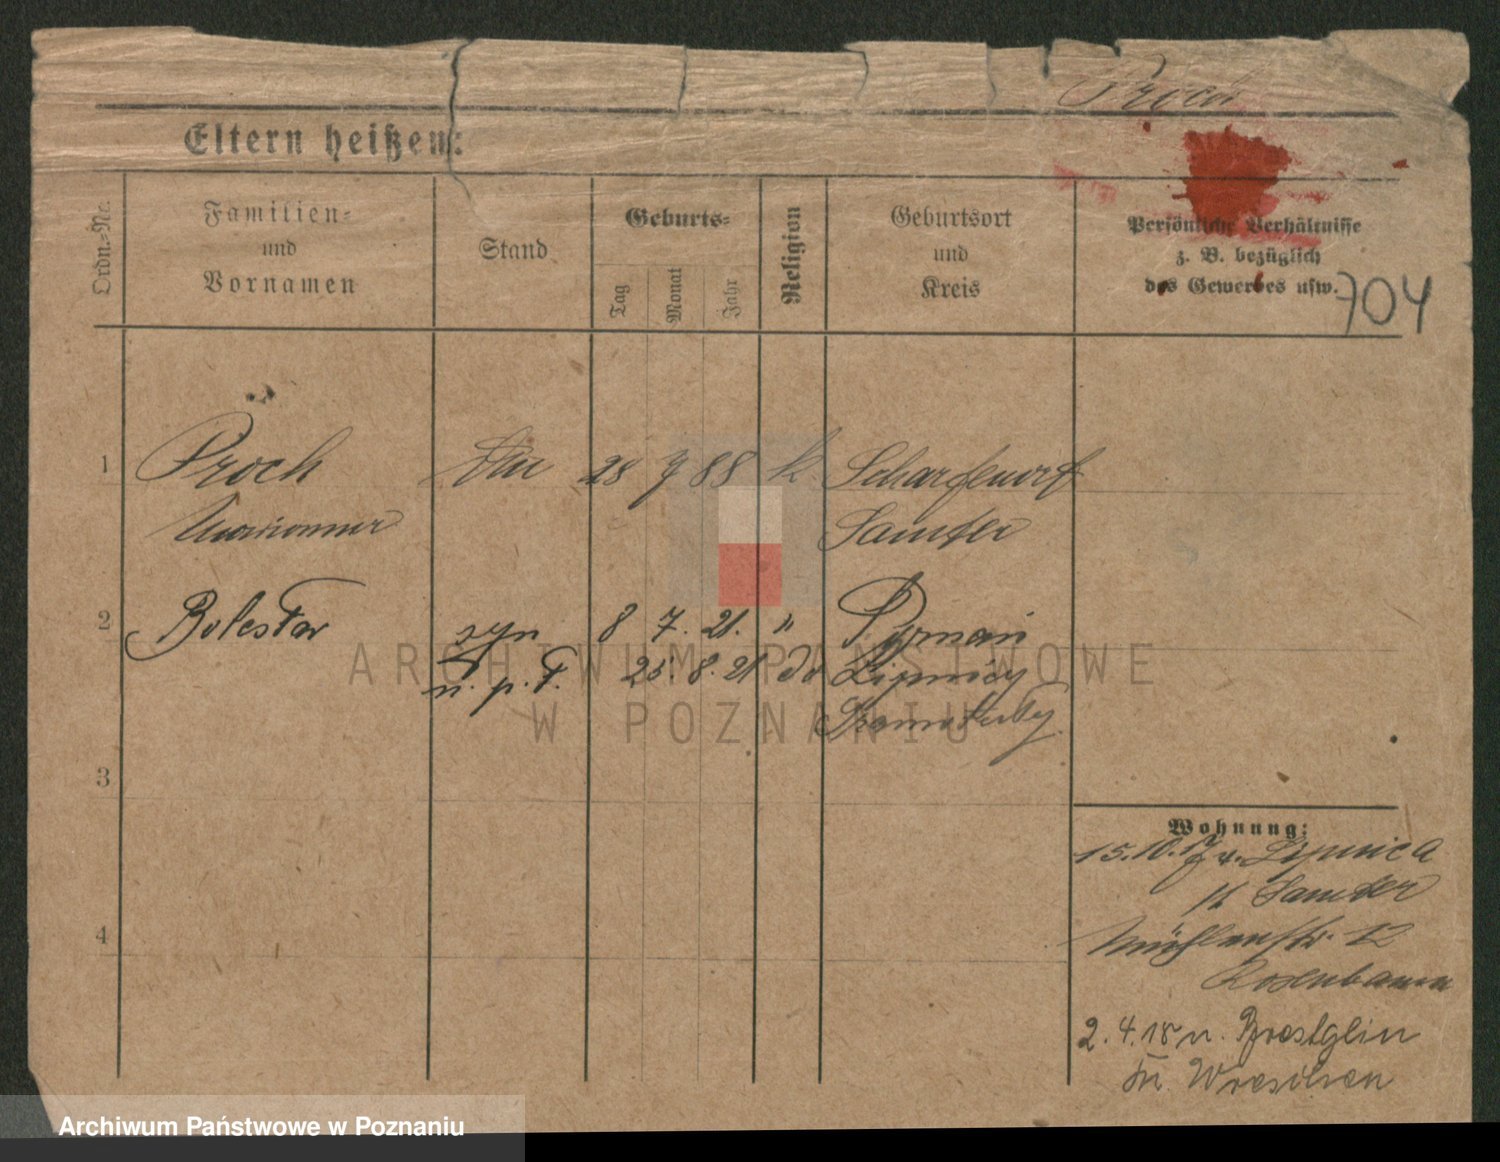 Proch
Eltern heißen:
Ordn.-Nr.
Familien-
und
Vornamen
Stand
Geburts-
Tag
Monat
Jahr
Religion
Geburtsort
und
Kreis
Persönliche Verhältnisse
z. B. bezüglich
des Gewerbes usw.
704
1 Proch 28 7 88 k Scharfenort
Samter
2 Bolesław syn 8 7. 21. "
n. p. t. 25. 8. 21 do Lipnicy
3
4
Wohnung:
15.10.17 v. Lipnica
n Samter
Mühlenstr. 12
Rosenbaum
2. 4. 18 n.
Kr. Wreschen
ARCHIWUM PAŃSTWOWE
W POZNANIU
Archiwum Państwowe w Poznaniu